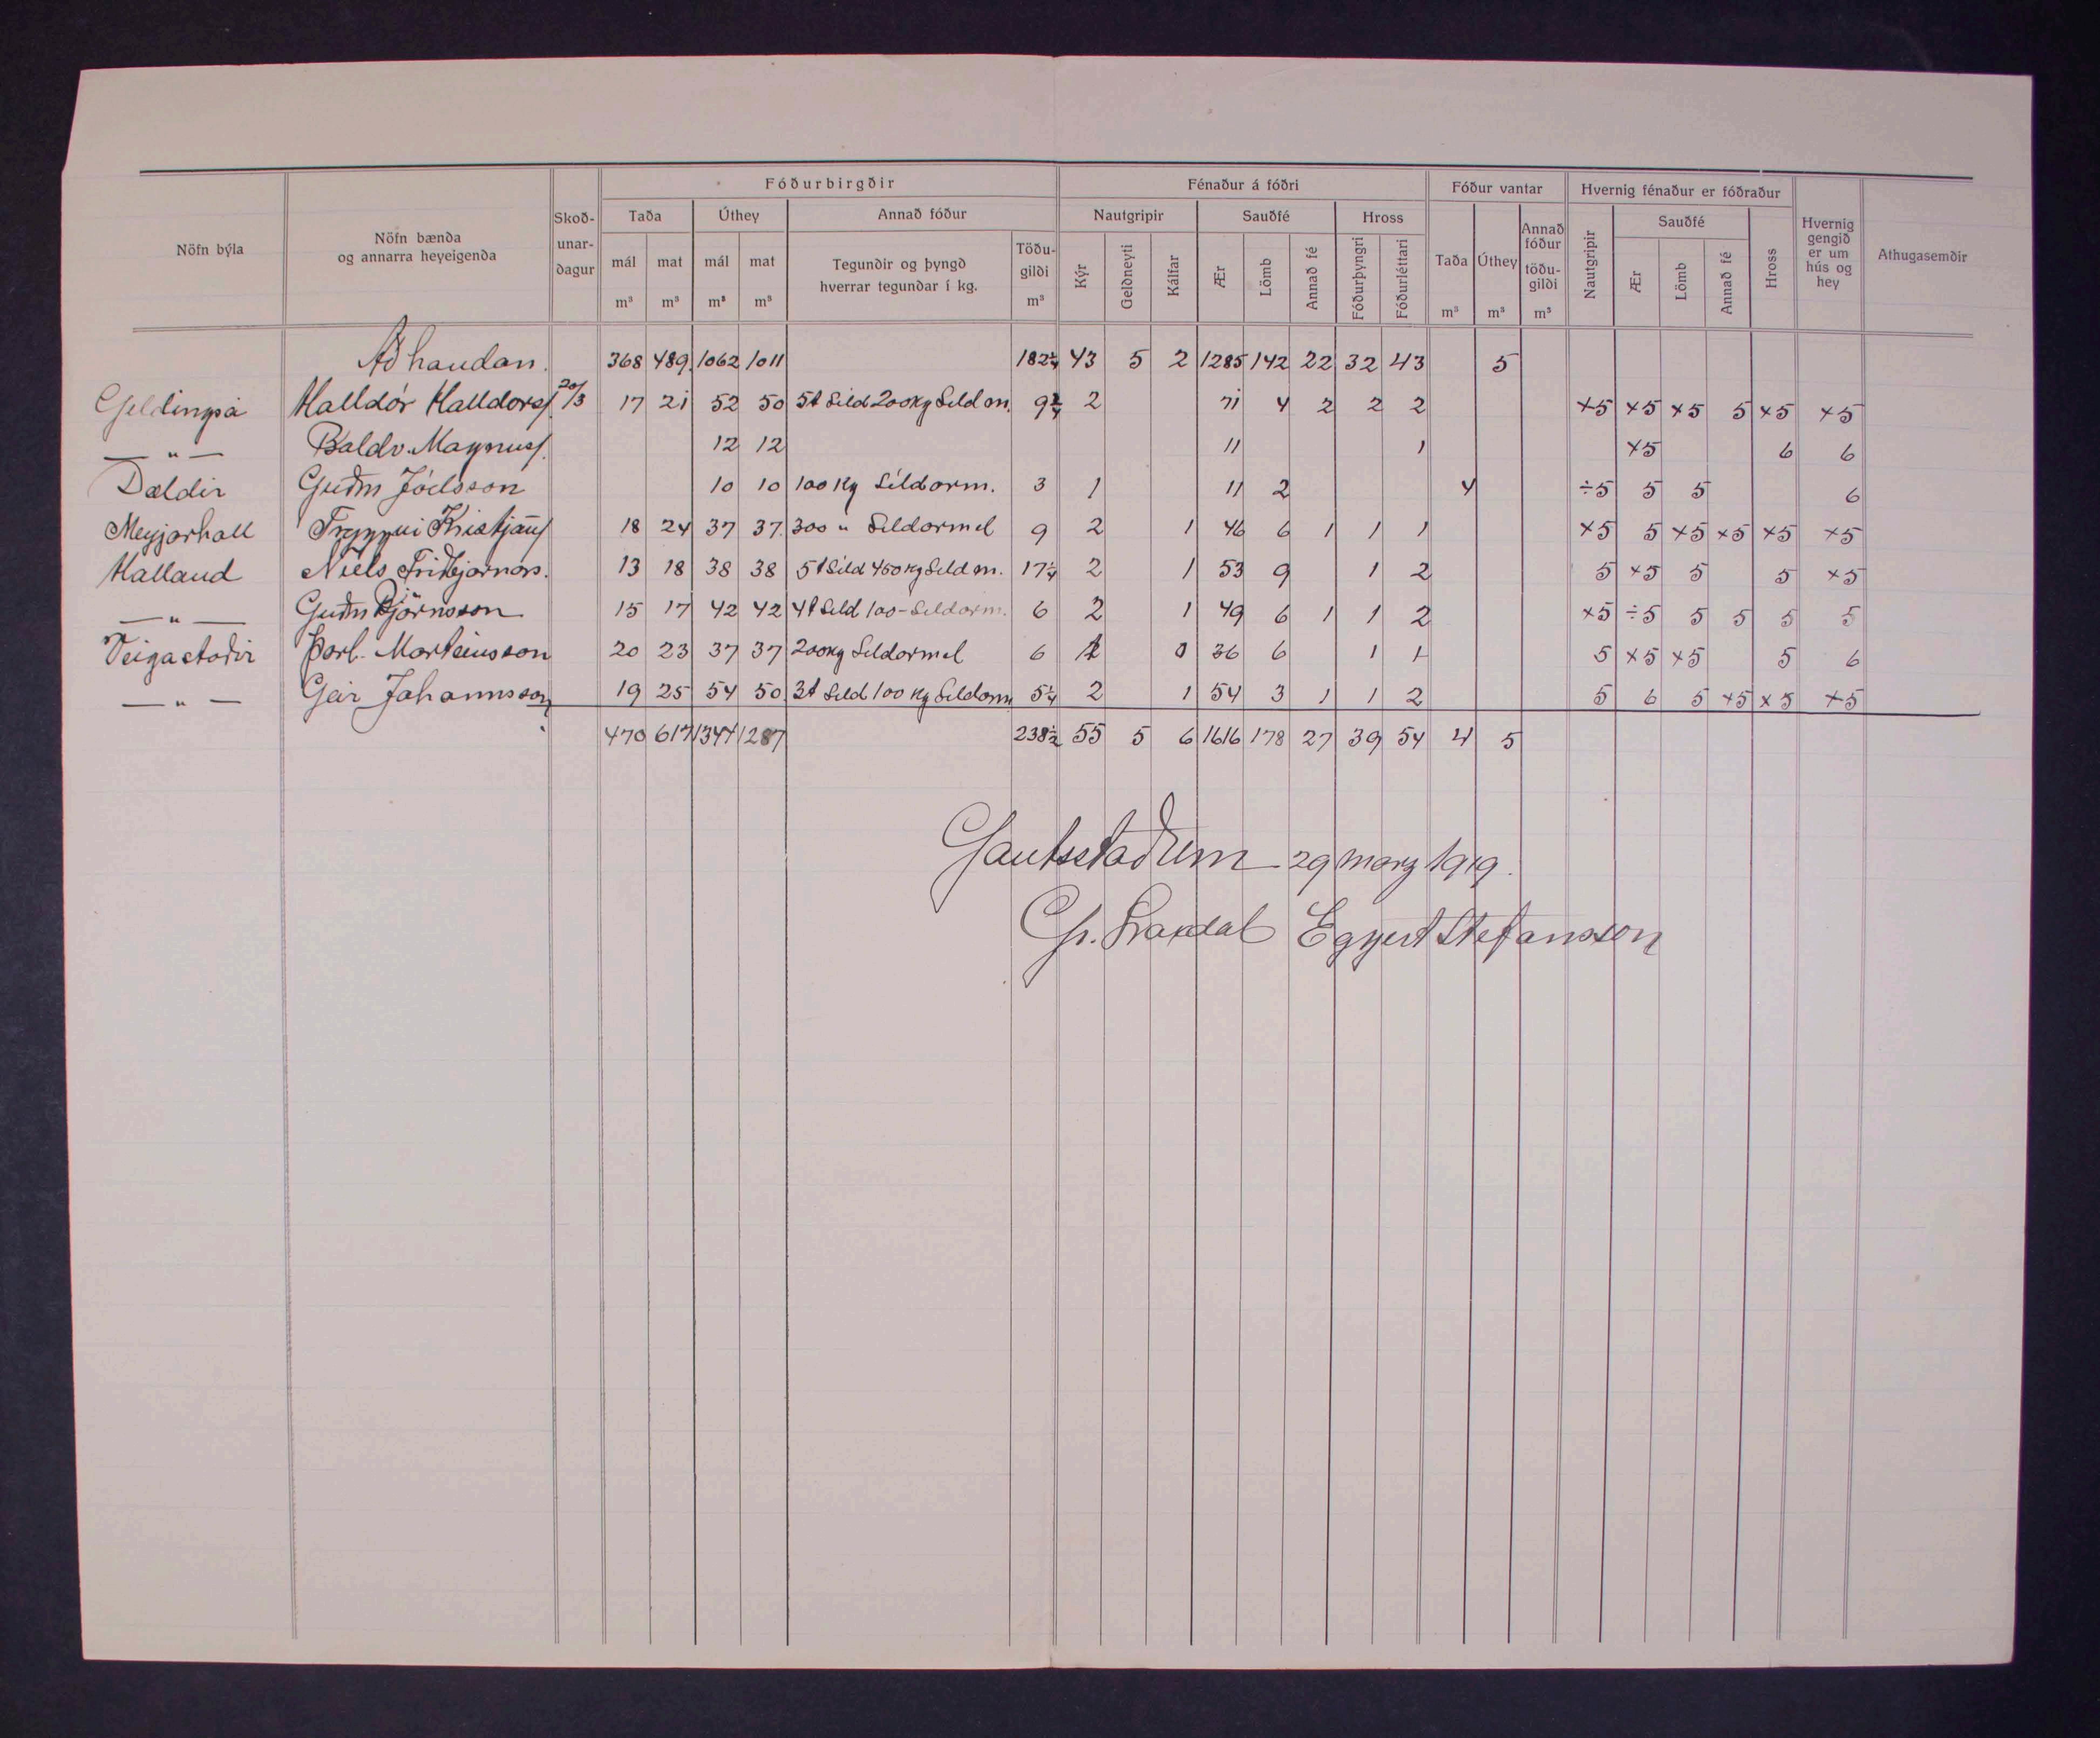 Nöfn býla
Nöfn bænda og annarra heyeigenda
Skoð-unar-dagur
Fóðurbirgðir
Taða
mál m³
mat m³
Úthey
mál m³
mat m³
Annað fóður
Tegundir og þyngd hverrar tegundar í kg.
Töðu-gildi m³
Fénaður á fóðri
Nautgripir
Kýr
Geldneyti
Kálfar
Sauðfé
Ær
Lömb
Annað fé
Hross
Fóðurþyngri
Fóðurléttari
Fóður vantar
Taða m³
Úthey m³
Annað fóður töðu-gildi m³
Hvernig fénaður er fóðraður
Nautgripir
Sauðfé
Ær
Lömb
Annað fé
Hross
Hvernig gengið er um hús og hey
Athugasemdir
Að handan. 368 489. 1062 1011 182¼ 43 5 2 1285 142 22 32 43 5
Geldingsá Halldór Halldorss 20/3 17 21 52 50 5t Síld 200kg Síld m. 9¾ 2 71 4 2 2 2 +5 +5 +5 5 +5 +5
— " — Baldv. Magnuss. 12 12 11 1 +5 6 6
Dældir Guðm Jóelsson 10 10 100 Kg Síldarm. 3 1 11 2 4 ÷5 5 5 6
Meyjarhall Tryggvi Kristjáns 18 24 37 37. 300 " Síldarmel 9 2 1 46 6 1 1 1 +5 5 +5 +5 +5 +5
Halland Niels Friðbjarnars. 13 18 38 38 5t Síld 450 kg Síld m. 17¼ 2 1 53 9 1 2 5 +5 5 5 +5
— " — Guðm Björnsson 15 17 42 42 4t Síld 100 - Síldarm. 6 2 1 49 6 1 1 2 +5 ÷5 5 5 5 5
Veigastaðir Þorl. Marteinsson 20 23 37 37 200kg Síldarmel 6 36 6 1 1 5 +5 +5 5 6
— " — Geir Jóhannsson 19 25 54 50. 3t Síld 100 Kg Síldarm 5¼ 2 1 54 3 1 1 2 5 6 5 +5 +5 +5
470 617 1344 1287 238½ 55 5 6 1616 178 27 39 54 4 5
Gautsstaðum 29 marz 1919.
Eggert Stefansson